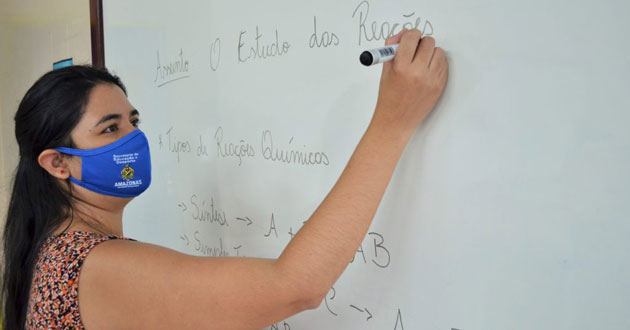 Assunto O Estudo das Reações
* Tipos de Reações Químicas
→ Síntese → A + AB
→ Simples
C → A
AB
Secretaria de
Educação e
Desporto
AMAZONAS